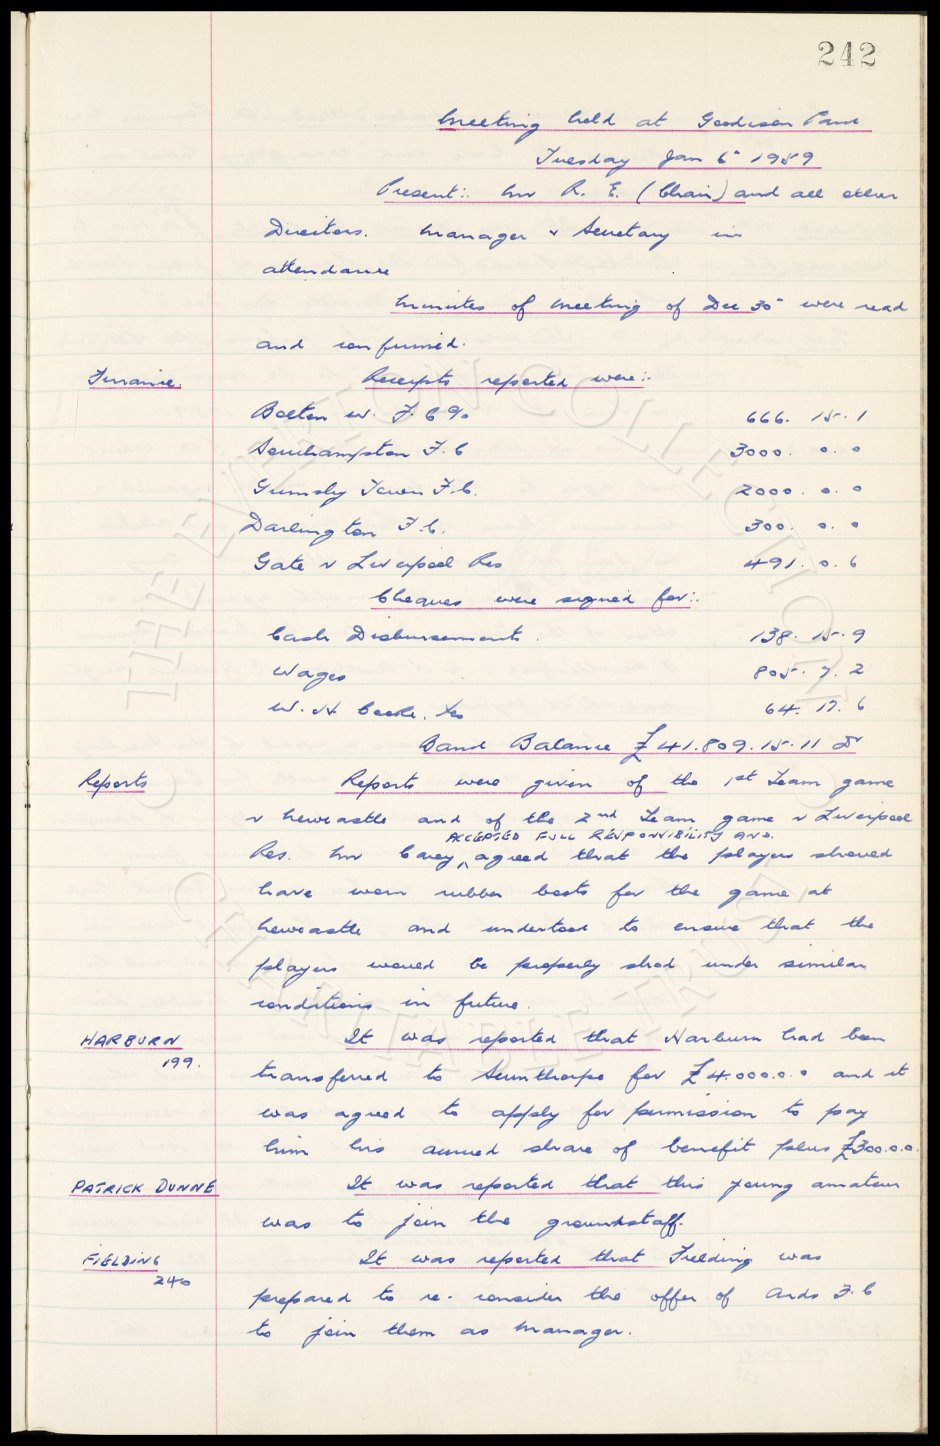 242
Meeting held at Goodison Park
Tuesday Jan 6th 1959
Present:- Mr R. E. (Chair) and all other
Directors. Manager & Secretary in
attendance
Minutes of Meeting of Dec 30th were read
and confirmed.
Finance. Receipts reported were:-
Bolton W. F. C % 666. 15. 1
Southampton F. C 3000. 0. 0
Grimsby Town F. C. 2000. 0. 0
Darlington F. C. 300. 0. 0
Gate v Liverpool Res 491. 0. 6
Cheques were signed for:-
Cash Disbursements. 138. 15. 9
Wages 805. 7. 2
W. H. Cooke. 64. 17. 6
Bank Balance £41.809.15.11 dr
Reports Reports were given of the 1st Team game
v Newcastle and of the 2nd Team game v Liverpool
ACCEPTED FULL RESPONSIBILITY AND.
Res. Mr Carey agreed that the players should
have worn rubber boots for the game at
Newcastle and undertook to ensure that the
players would be properly shod under similar
conditions in future.
HARBURN It was reported that Harburn had been
199.
transferred to Scunthorpe for £4.000.0.0 and it
was agreed to apply for permission to pay
him his accrued share of benefit plus £300.0.0.
PATRICK DUNNE It was reported that this young amateur
was to join the groundstaff.
FIELDING It was reported that Fielding was
240
prepared to re-consider the offer of Ards F. C
to join them as Manager.
THE EVERTON COLLECTION
CHARITABLE TRUST